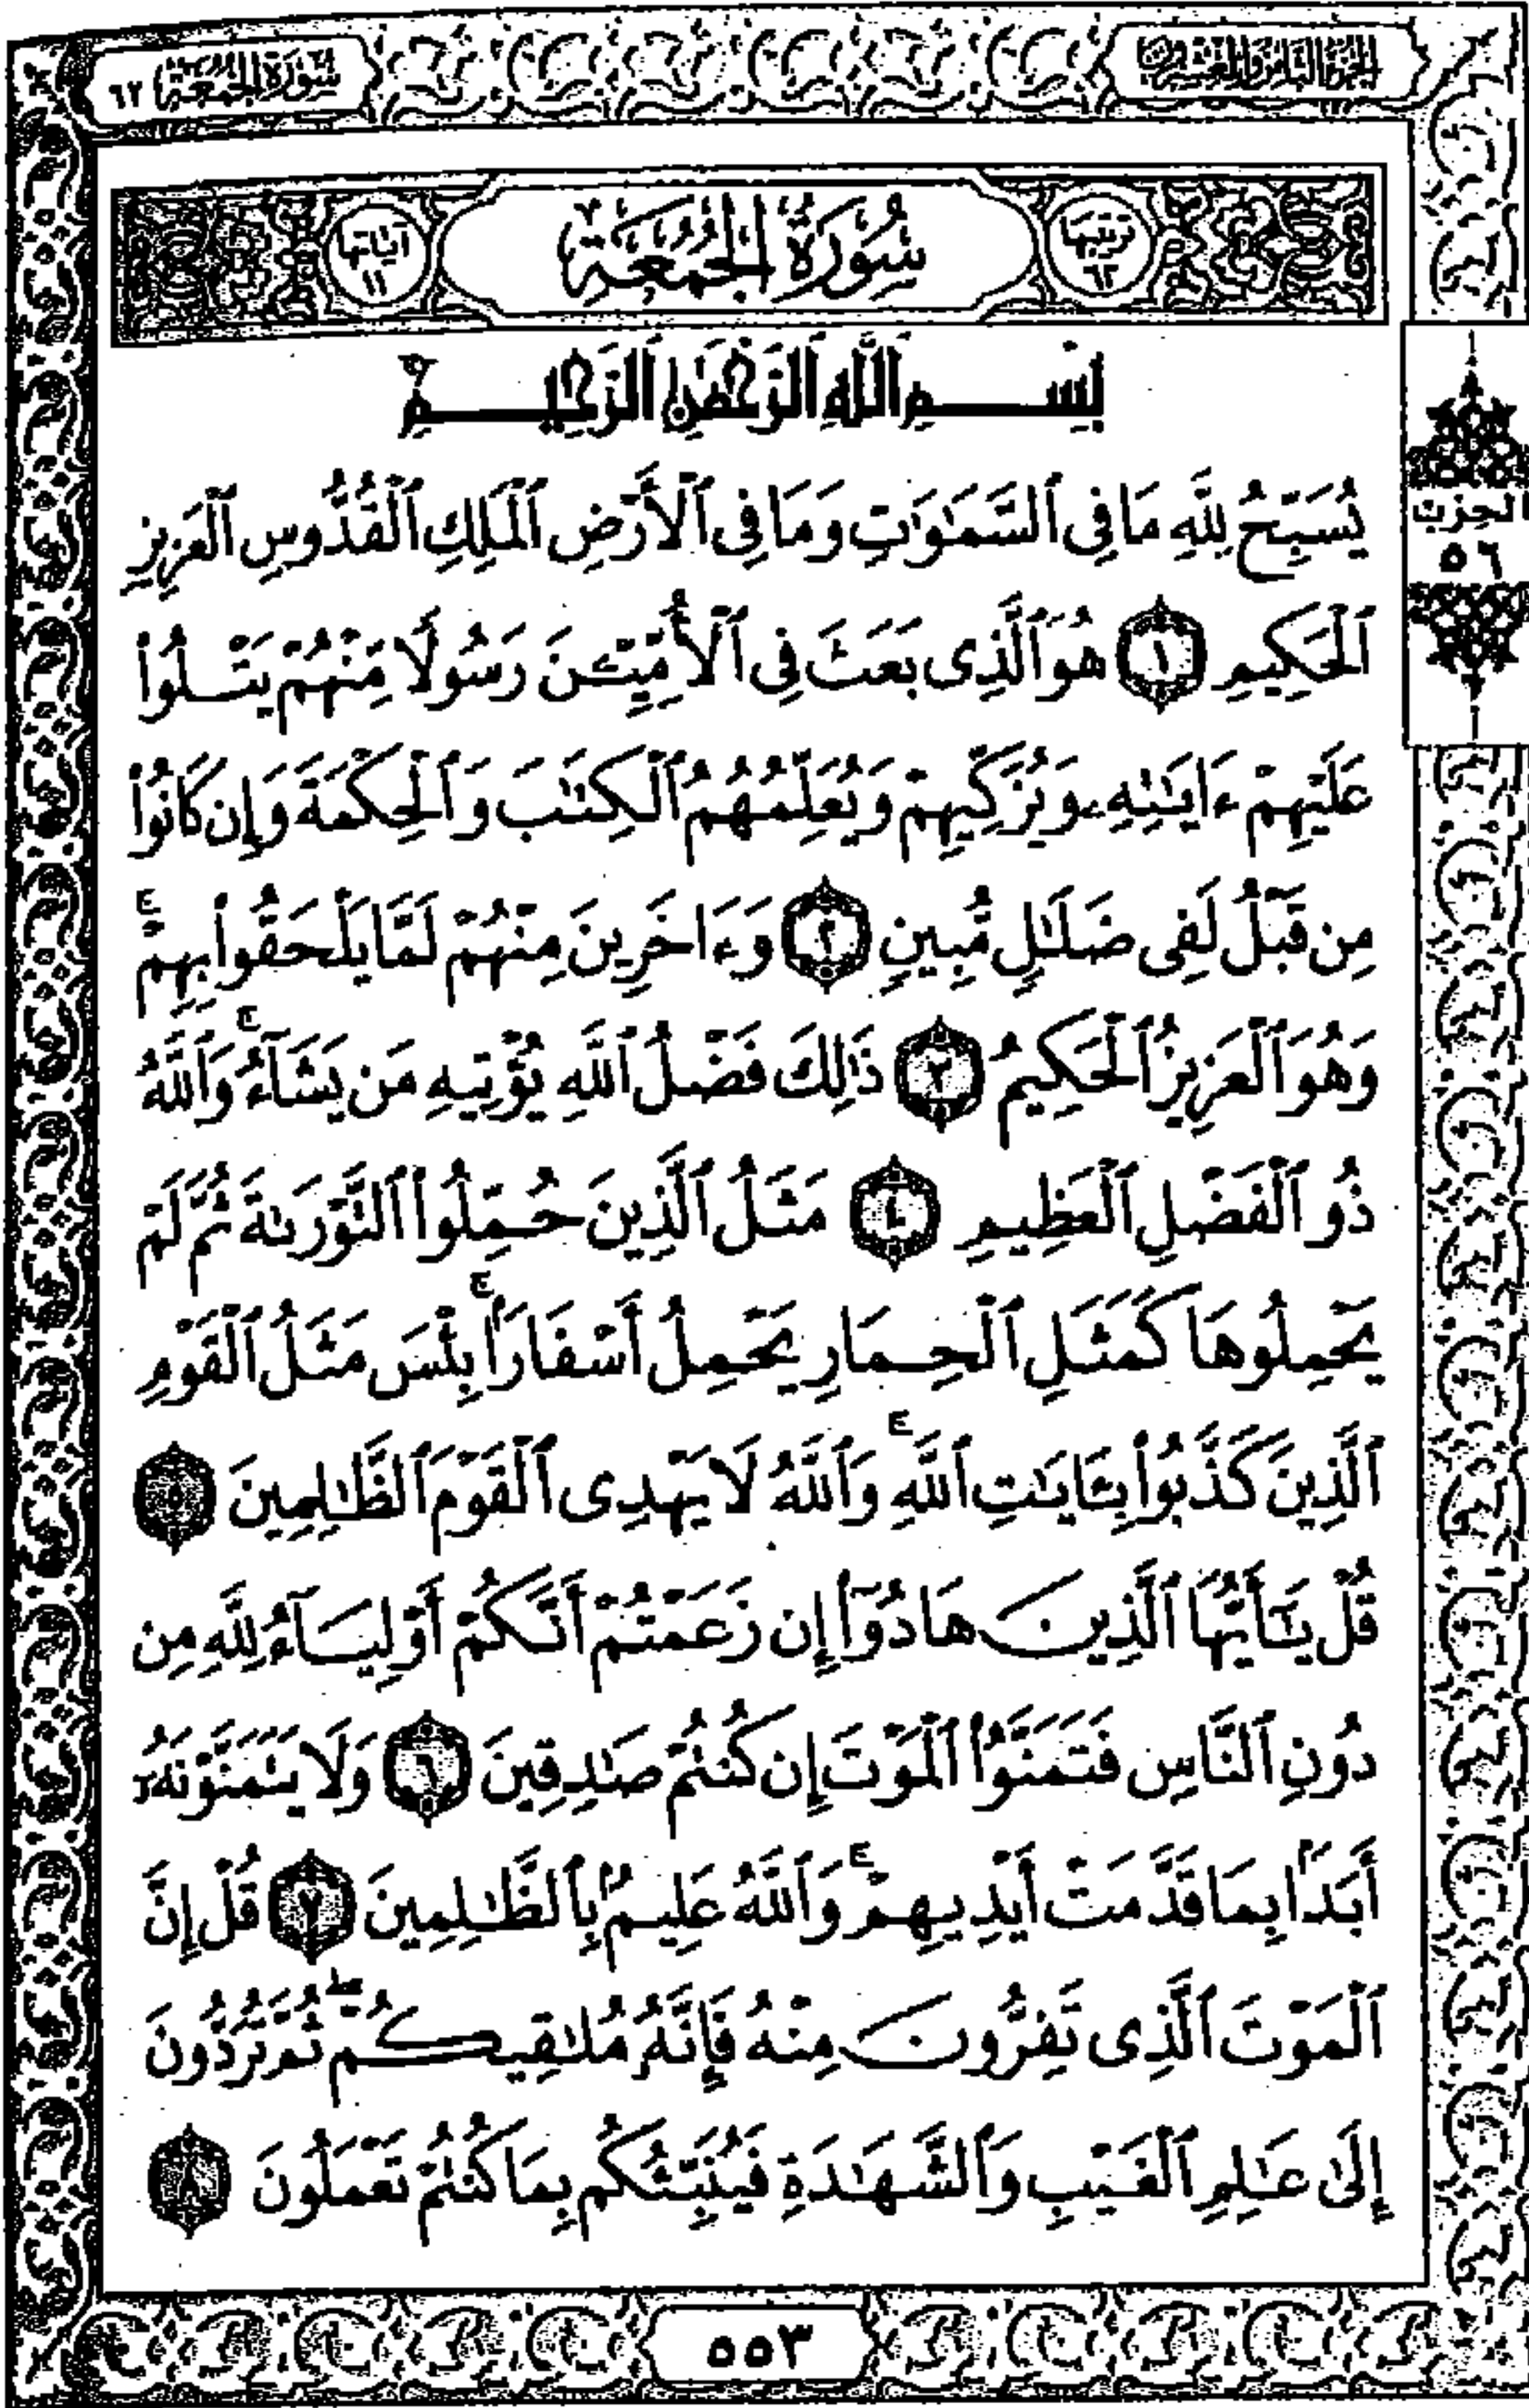 الجزء الثامن والعشرون
سورة الجمعة ٦٢
ترتيبها
٦٢
سُورَةُ الجُمُعَةِ
آياتها
١١
بِسْمِ ٱللَّهِ ٱلرَّحْمَٰنِ ٱلرَّحِيمِ
الحزب
٥٦
يُسَبِّحُ لِلَّهِ مَا فِى ٱلسَّمَٰوَٰتِ وَمَا فِى ٱلْأَرْضِ ٱلْمَلِكِ ٱلْقُدُّوسِ ٱلْعَزِيزِ
ٱلْحَكِيمِ ١ هُوَ ٱلَّذِى بَعَثَ فِى ٱلْأُمِّيِّـۧنَ رَسُولًا مِّنْهُمْ يَتْلُوا۟
عَلَيْهِمْ ءَايَٰتِهِۦ وَيُزَكِّيهِمْ وَيُعَلِّمُهُمُ ٱلْكِتَٰبَ وَٱلْحِكْمَةَ وَإِن كَانُوا۟
مِن قَبْلُ لَفِى ضَلَٰلٍ مُّبِينٍ ٢ وَءَاخَرِينَ مِنْهُمْ لَمَّا يَلْحَقُوا۟ بِهِمْ ۚ
وَهُوَ ٱلْعَزِيزُ ٱلْحَكِيمُ ٣ ذَٰلِكَ فَضْلُ ٱللَّهِ يُؤْتِيهِ مَن يَشَآءُ ۚ وَٱللَّهُ
ذُو ٱلْفَضْلِ ٱلْعَظِيمِ ٤ مَثَلُ ٱلَّذِينَ حُمِّلُوا۟ ٱلتَّوْرَىٰةَ ثُمَّ لَمْ
يَحْمِلُوهَا كَمَثَلِ ٱلْحِمَارِ يَحْمِلُ أَسْفَارًۢا ۚ بِئْسَ مَثَلُ ٱلْقَوْمِ
ٱلَّذِينَ كَذَّبُوا۟ بِـَٔايَٰتِ ٱللَّهِ ۚ وَٱللَّهُ لَا يَهْدِى ٱلْقَوْمَ ٱلظَّٰلِمِينَ ٥
قُلْ يَٰٓأَيُّهَا ٱلَّذِينَ هَادُوٓا۟ إِن زَعَمْتُمْ أَنَّكُمْ أَوْلِيَآءُ لِلَّهِ مِن
دُونِ ٱلنَّاسِ فَتَمَنَّوُا۟ ٱلْمَوْتَ إِن كُنتُمْ صَٰدِقِينَ ٦ وَلَا يَتَمَنَّوْنَهُۥٓ
أَبَدًۢا بِمَا قَدَّمَتْ أَيْدِيهِمْ ۚ وَٱللَّهُ عَلِيمٌۢ بِٱلظَّٰلِمِينَ ٧ قُلْ إِنَّ
ٱلْمَوْتَ ٱلَّذِى تَفِرُّونَ مِنْهُ فَإِنَّهُۥ مُلَٰقِيكُمْ ۖ ثُمَّ تُرَدُّونَ
إِلَىٰ عَٰلِمِ ٱلْغَيْبِ وَٱلشَّهَٰدَةِ فَيُنَبِّئُكُم بِمَا كُنتُمْ تَعْمَلُونَ ٨
٥٥٣